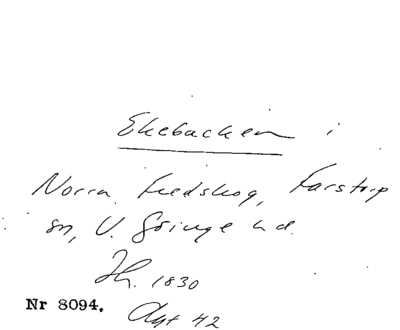 Ekebacken i
Norra Fredskog, Farstorp
sn, V. Göinge hd.
Jh. 1830
Nr 8094. Agt 42